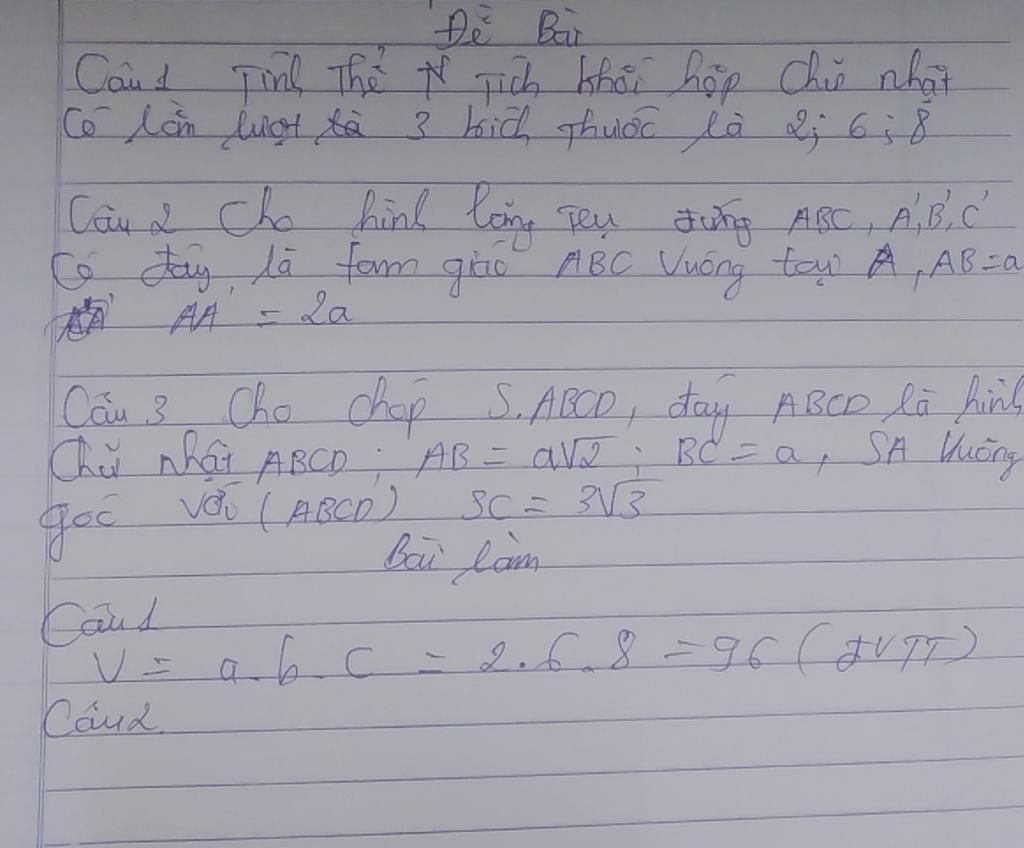 Đề Bài
Câu 1 Tính Thể Tích khối hộp chữ nhật
Có lần lượt là 3 kích thước là 2; 6; 8
Câu 2 Cho hình lăng trụ đứng ABC, A', B', C'
Có đáy là tam giác ABC Vuông tại A, AB = a
AA' = 2a
Câu 3 Cho chóp S.ABCD, đáy ABCD là hình
Chữ nhật ABCD; AB = a√2; BC = a, SA Vuông
góc với (ABCD) SC = 3√3
Bài làm
Câu 1
V = a.b.c = 2.6.8 = 96 (ĐVTT)
Câu 2.